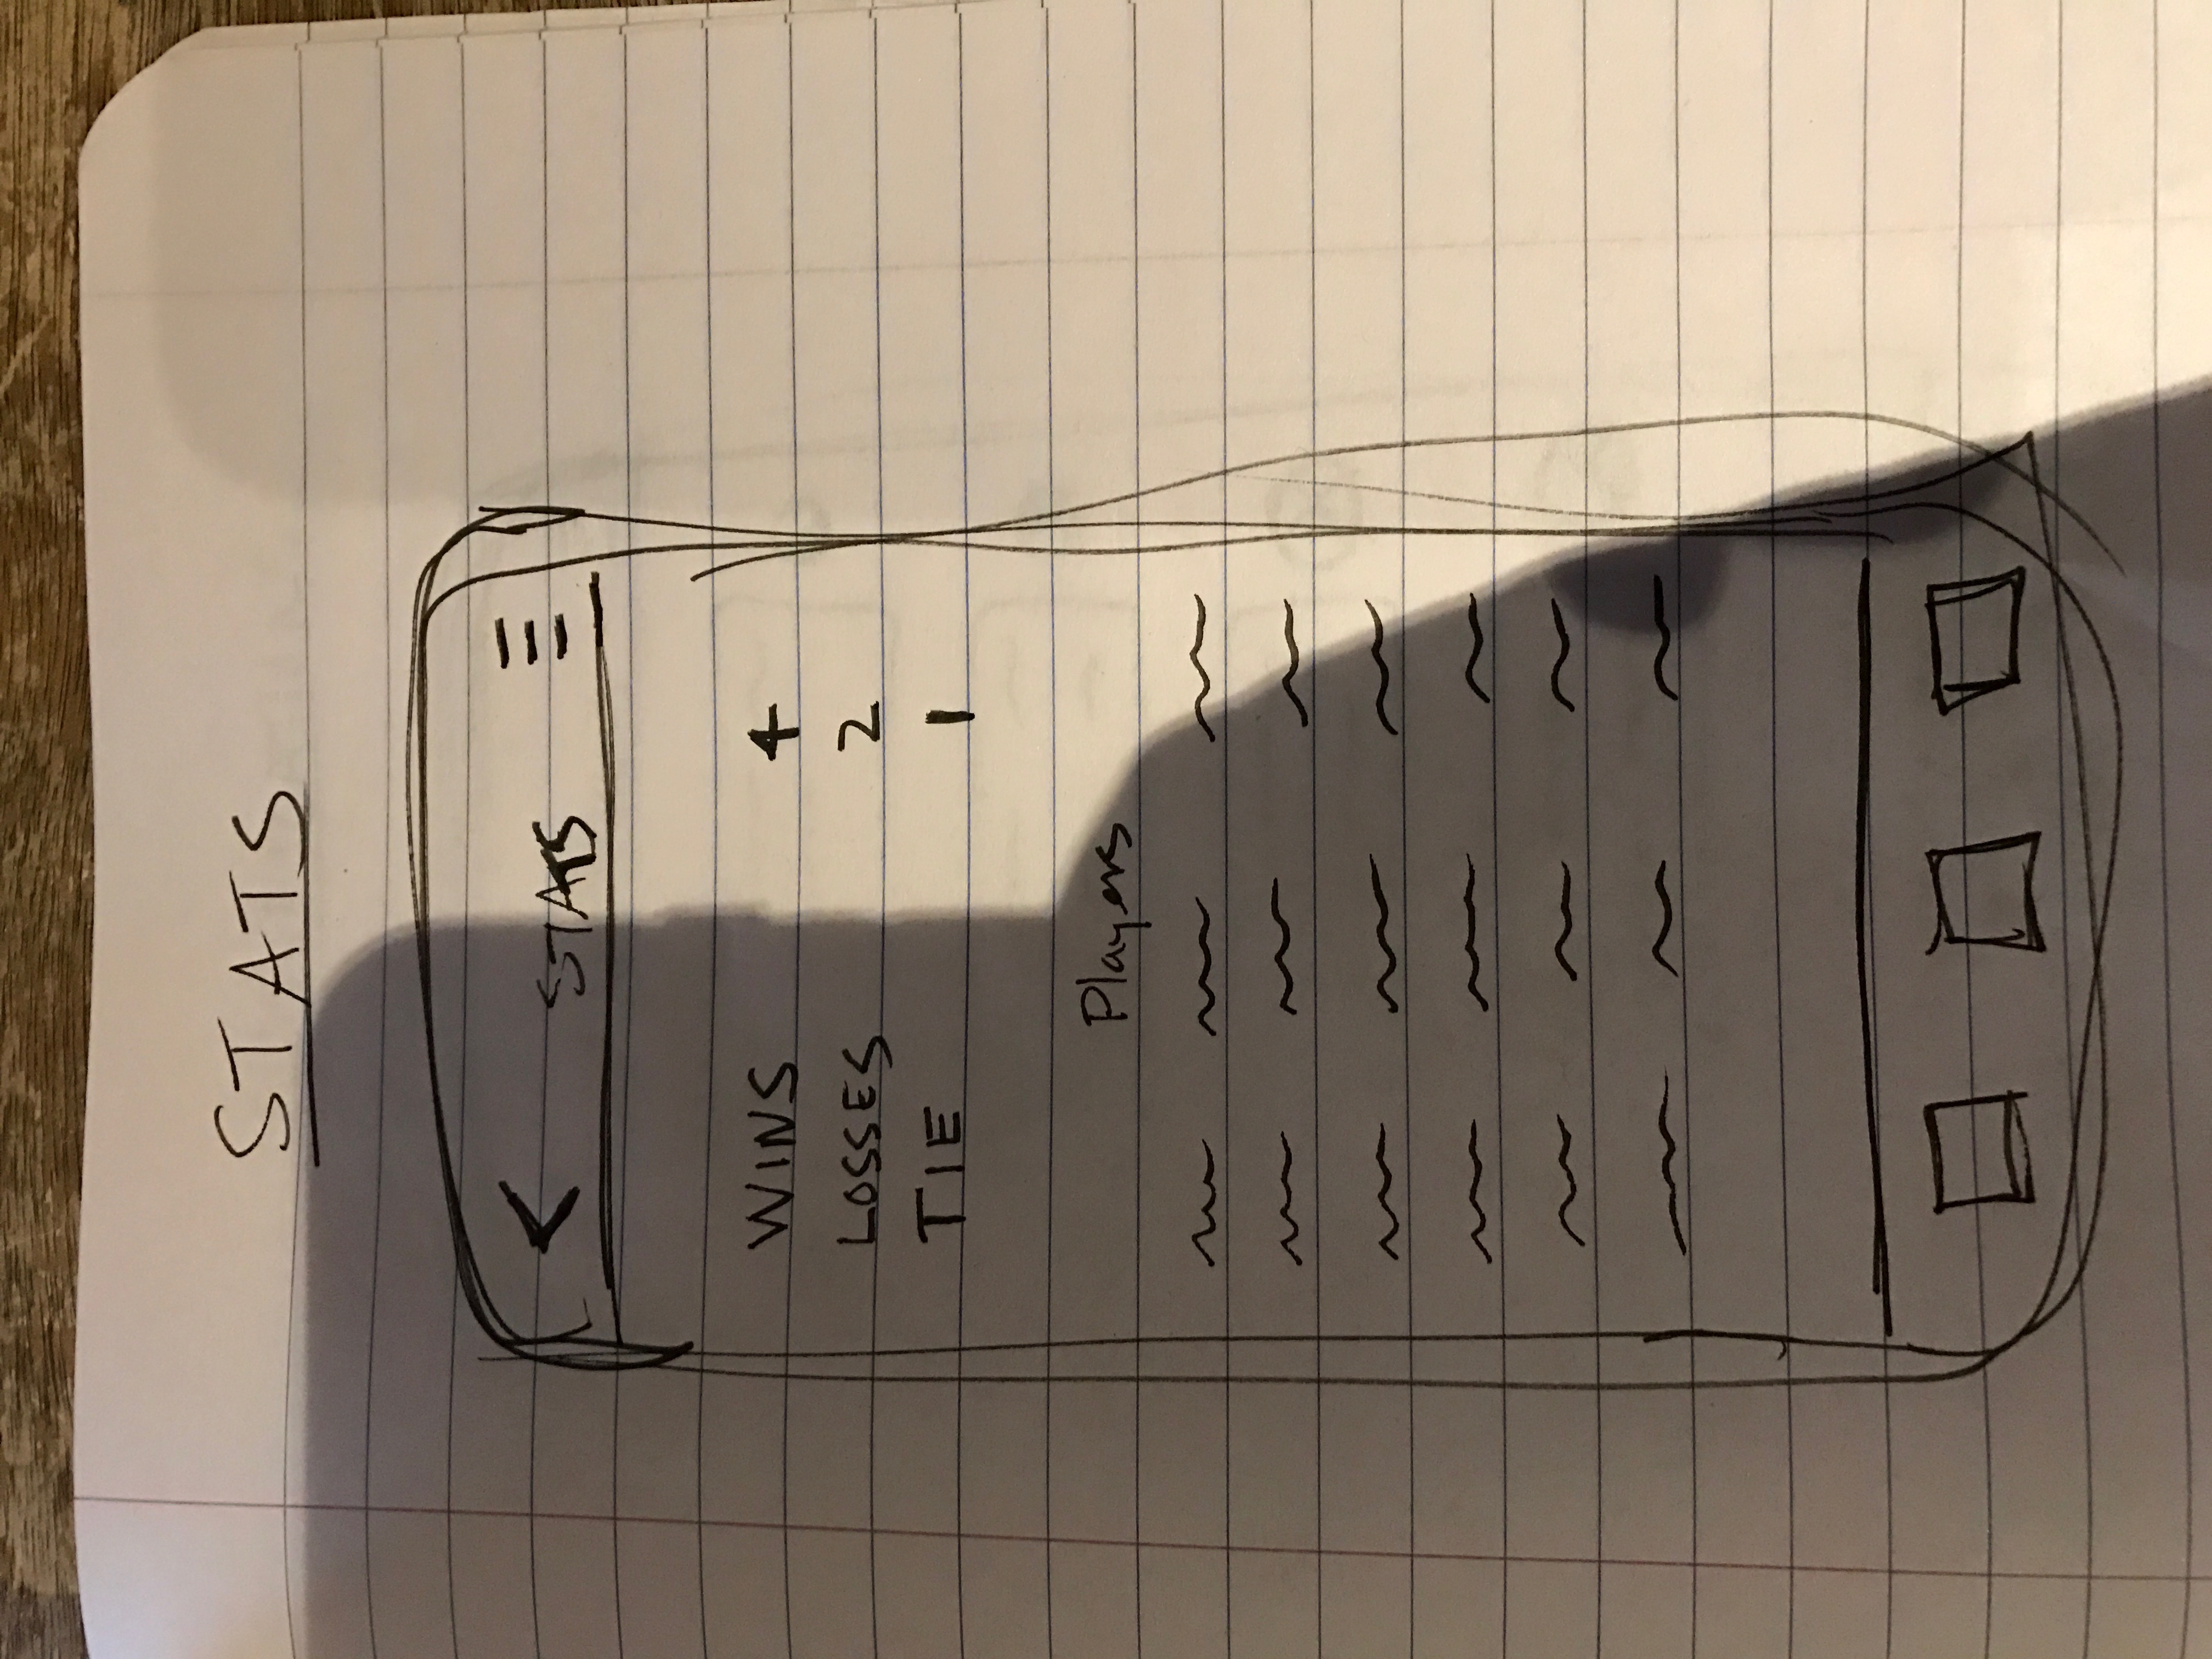 STATS
< STATS
WINS 4
LOSSES 2
TIE 1
Players